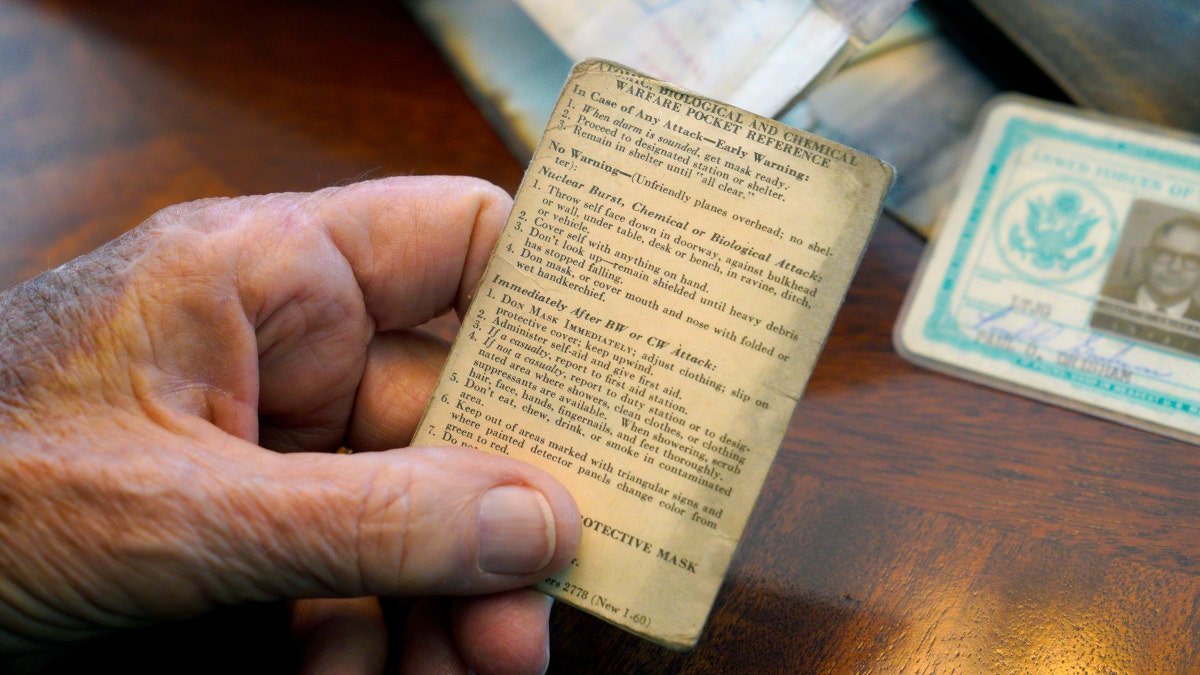 ATOMIC, BIOLOGICAL AND CHEMICAL
WARFARE POCKET REFERENCE
In Case of Any Attack—Early Warning:
1. When alarm is sounded, get mask ready.
2. Proceed to designated station or shelter.
3. Remain in shelter until "all clear."
No Warning—(Unfriendly planes overhead; no shel-
ter):
Nuclear Burst, Chemical or Biological Attack:
1. Throw self face down in doorway, against bulkhead
or wall, under table, desk or bench, in ravine, ditch,
or vehicle.
2. Cover self with anything on hand.
3. Don't look up—remain shielded until heavy debris
has stopped falling.
4. Don mask, or cover mouth and nose with folded or
wet handkerchief.
Immediately After BW or CW Attack:
1. DON MASK IMMEDIATELY; adjust clothing; slip on
protective cover; keep upwind.
2. Administer self-aid and give first aid.
3. If a casualty, report to first aid station.
4. If not a casualty, report to duty station or to desig-
nated area where showers, clean clothes, or clothing
suppressants are available. When showering, scrub
hair, face, hands, fingernails, and feet thoroughly.
5. Don't eat, chew, drink, or smoke in contaminated
area.
6. Keep out of areas marked with triangular signs and
where painted detector panels change color from
green to red.
7. Do no
OTECTIVE MASK
r.
ers 2778 (New 1-60)
ARMED FORCES OF
LTJG